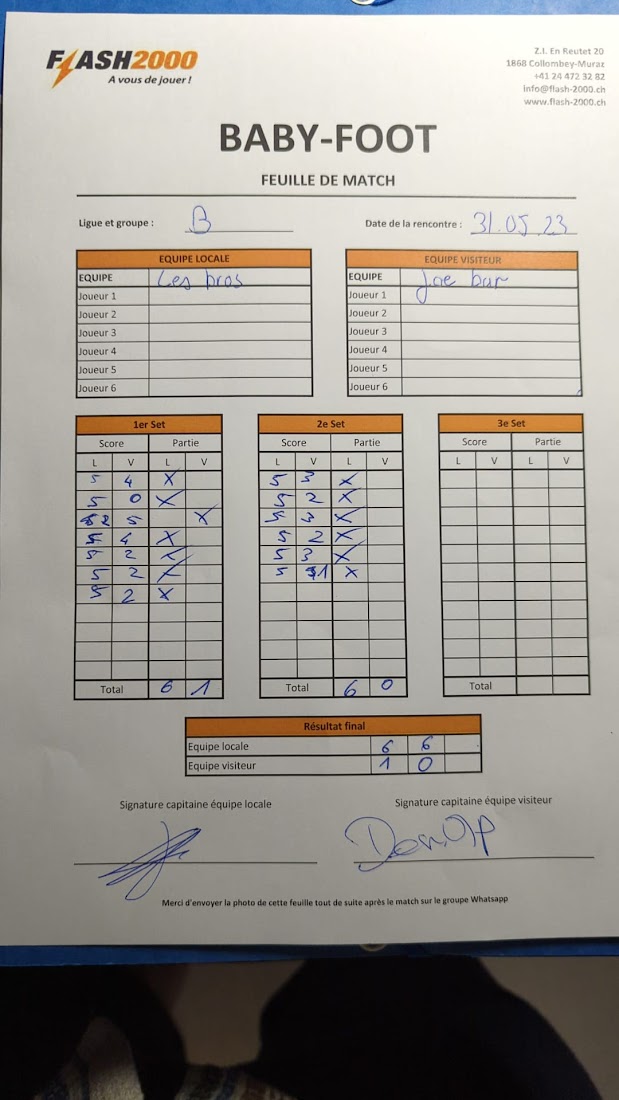 FLASH2000
A vous de jouer !
Z.I. En Reutet 20
1868 Collombey-Muraz
+41 24 472 32 82
info@flash-2000.ch
www.flash-2000.ch
BABY-FOOT
FEUILLE DE MATCH
Ligue et groupe : B Date de la rencontre : 31.05.23
EQUIPE LOCALE EQUIPE VISITEUR
EQUIPE Les bros EQUIPE Joe bar
Joueur 1 Joueur 1
Joueur 2 Joueur 2
Joueur 3 Joueur 3
Joueur 4 Joueur 4
Joueur 5 Joueur 5
Joueur 6 Joueur 6
1er Set 2e Set 3e Set
Score Partie Score Partie Score Partie
L V L V L V L V L V L V
5 4 X 5 3 X
5 0 X 5 2 X
2 5 X 5 3 X
5 4 X 5 2 X
5 2 X 5 3 X
5 2 X 5 1 X
5 2 X
Total 6 1 Total 6 0 Total
Résultat final
Equipe locale 6 6
Equipe visiteur 1 0
Signature capitaine équipe locale Signature capitaine équipe visiteur
Merci d'envoyer la photo de cette feuille tout de suite après le match sur le groupe Whatsapp